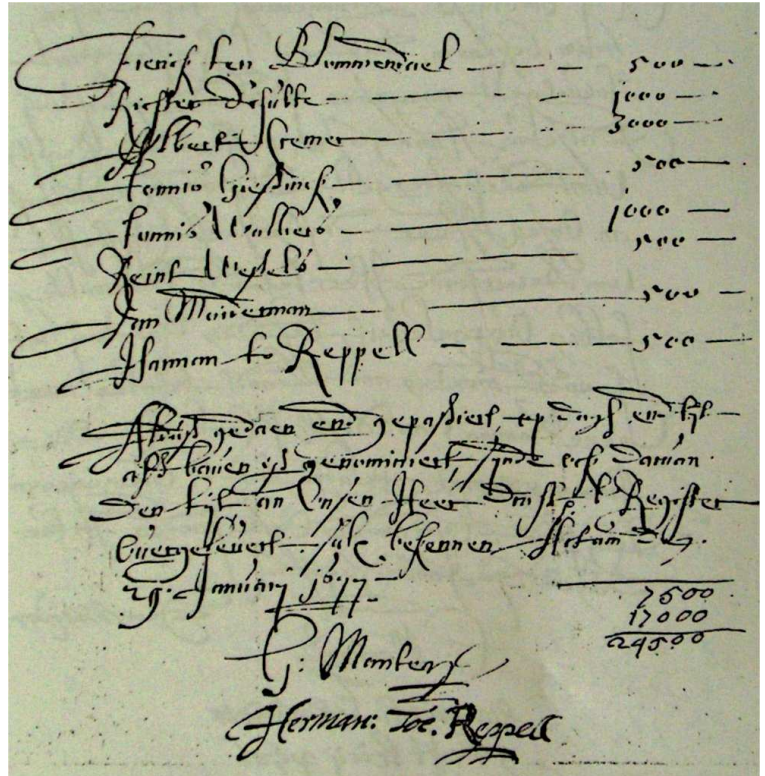 Frerick ten Bommendael — — — 500 —
Richter Schulte — — 1000 —
Albert Kremer — — 3000 —
Tonnis — — 500 —
Tonnis Wolters — — 1000 —
Reint Wessels — — 500 —
Jan Moderman — — 500 —
Harman to Reppell — — 500 —
gedaen ende gepassiert, op dagh en tyt
als baven is genominiert, sijnde ock daervan
den tyt an Unsen Heer Register
overgelevert sulx bekennen Actum den
29 Januarij 1677
7500
17000
24500
G: Manter
Herman: Toe. Reppell